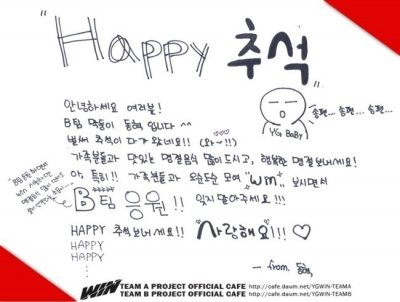 "HAPPY 추석"
안녕하세요 여러분!
B팀 막둥이 동혁 입니다 ^^
벌써 추석이 다가 왔네요!! (와~!!)
가족분들과 맛있는 명절음식 많이 드시고, 행복한 명절 보내세요!
아, 특히!! 가족분들과 오순도순 모여 "WIN" 보시면서
B팀 응원!! 잊지 말아주세요!!!
HAPPY 추석 보내세요!! "사랑해요!!! ♡
HAPPY
HAPPY
- from. 동혁
송편... 송편... 송편...
YG BABY
WIN TEAM A PROJECT OFFICIAL CAFE http://cafe.daum.net/YGWIN-TEAMA
TEAM B PROJECT OFFICIAL CAFE http://cafe.daum.net/YGWIN-TEAMB